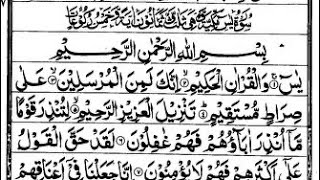 بِسْمِ اللهِ الرَّحْمٰنِ الرَّحِيْمِ
يٰسٓ ۚ وَالْقُرْاٰنِ الْحَكِيْمِ ۙ اِنَّكَ لَمِنَ الْمُرْسَلِيْنَ ۙ عَلٰى
صِرَاطٍ مُّسْتَقِيْمٍ ؕ تَنْزِيْلَ الْعَزِيْزِ الرَّحِيْمِ ۙ لِتُنْذِرَ قَوْمًا
مَّاۤ اُنْذِرَ اٰبَآؤُهُمْ فَهُمْ غٰفِلُوْنَ لَقَدْ حَقَّ الْقَوْلُ
عَلٰۤى اَكْثَرِهِمْ فَهُمْ لَا يُؤْمِنُوْنَ اِنَّا جَعَلْنَا فِيْۤ اَعْنَاقِهِمْ